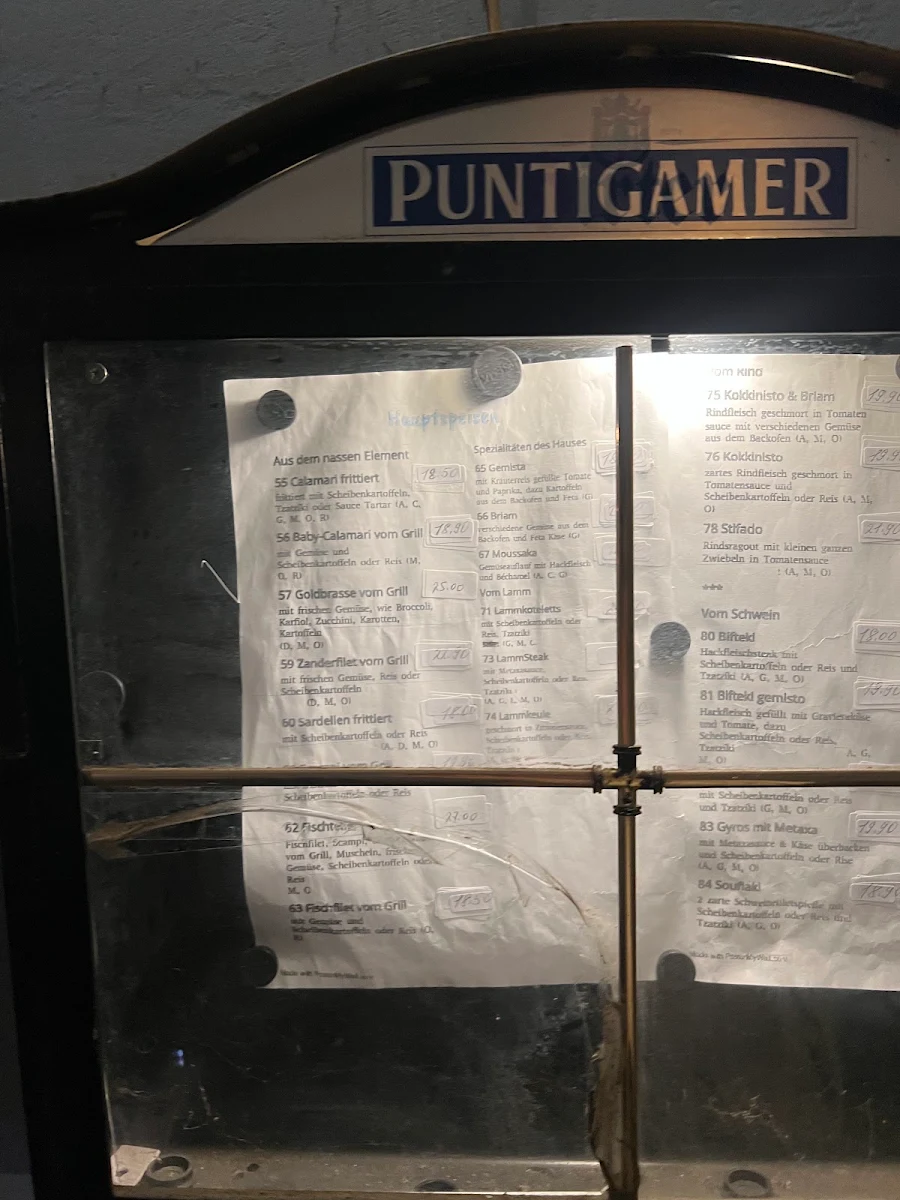 PUNTIGAMER
Hauptspeisen
Aus dem nassen Element
55 Calamari frittiert 18.50
frittiert mit Scheibenkartoffeln,
Tzatziki oder Sauce Tartar (A, C,
G, M, O, R)
56 Baby-Calamari vom Grill 18,90
mit Gemüse und
Scheibenkartoffeln oder Reis (M,
O, R)
57 Goldbrasse vom Grill 25.00
mit frischen Gemüse, wie Broccoli,
Karfiol, Zucchini, Karotten,
Kartoffeln
(D, M, O)
59 Zanderfilet vom Grill
mit frischen Gemüse, Reis oder
Scheibenkartoffeln
(D, M, O)
60 Sardellen frittiert
mit Scheibenkartoffeln oder Reis
(A, D, M, O)
Scheibenkartoffeln oder Reis
62 27.00
Fischfilet, Scampi,
vom Grill, Muscheln,
Gemüse, Scheibenkartoffeln oder
Reis
M, O
63 Fischfilet vom Grill 18.50
mit Gemüse und
Scheibenkartoffeln oder Reis
Spezialitäten des Hauses
65 Gemista
mit Kräuterreis gefüllte Tomate
und Paprika, dazu Kartoffeln
aus dem Backofen und Feta (G)
66 Briam
verschiedene Gemüse aus dem
Backofen und Feta Käse (G)
67 Moussaka
Gemüseauflauf mit Hackfleisch
und Béchamel (A, C, G)
Vom Lamm
71 Lammkoteletts
mit Scheibenkartoffeln oder
Reis, Tzatziki
73 LammSteak
mit Metaxasauce,
Scheibenkartoffeln oder Reis,
Tzatziki
74 Lammkeule
om Rind
75 Kokkinisto & Briam 19.90
Rindfleisch geschmort in Tomaten
sauce mit verschiedenen Gemüse
aus dem Backofen (A, M, O)
76 Kokkinisto
zartes Rindfleisch geschmort in
Tomatensauce und
Scheibenkartoffeln oder Reis (A, M,
O)
78 Stifado 21.90
Rindsragout mit kleinen ganzen
Zwiebeln in Tomatensauce
: (A, M, O)
***
Vom Schwein
80 Bifteki 18.00
Hackfleischsteak mit
Scheibenkartoffeln oder Reis und
Tzatziki (A, G, M, O)
81 Bifteki gemisto 19.90
Hackfleisch gefüllt mit
und Tomate, dazu
Scheibenkartoffeln oder Reis,
Tzatziki A, G,
M, O)
mit Scheibenkartoffeln oder Reis
und Tzatziki (G, M, O)
83 Gyros mit Metaxa 19.90
mit Metaxasauce & Käse überbacken
und Scheibenkartoffeln oder Rise
(A, G, M, O)
84 Souflaki 18.90
2 zarte Schweinefiletspieße mit
Scheibenkartoffeln oder Reis und
Tzatziki (A, G, O)